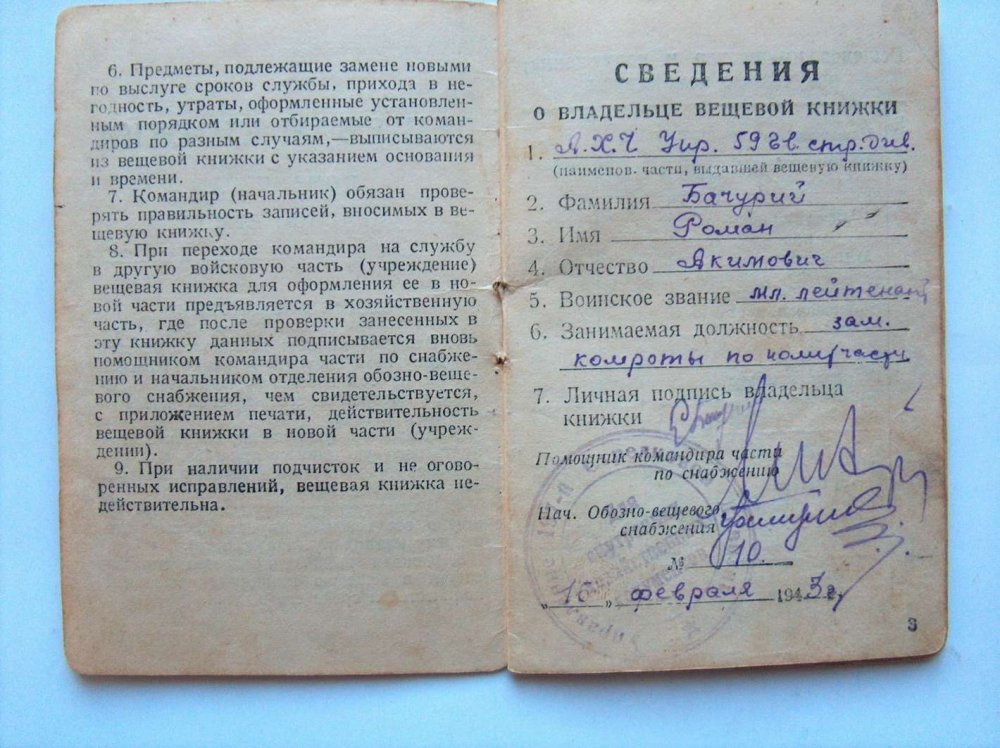 6. Предметы, подлежащие замене новыми
по выслуге сроков службы, прихода в не-
годность, утраты, оформленные установлен-
ным порядком или отбираемые от коман-
диров по разным случаям,—выписываются
из вещевой книжки с указанием основания
и времени.
7. Командир (начальник) обязан прове-
рять правильность записей, вносимых в ве-
щевую книжку.
8. При переходе командира на службу
в другую войсковую часть (учреждение)
вещевая книжка для оформления ее в но-
вой части предъявляется в хозяйственную
часть, где после проверки занесенных в
эту книжку данных подписывается вновь
помощником командира части по снабже-
нию и начальником отделения обозно-веще-
вого снабжения, чем свидетельствуется,
с приложением печати, действительность
вещевой книжки в новой части (учреж-
дении).
9. При наличии подчисток и не огово-
ренных исправлений, вещевая книжка не-
действительна.
СВЕДЕНИЯ
О ВЛАДЕЛЬЦЕ ВЕЩЕВОЙ КНИЖКИ
1. А.Х.Ч Упр. 59 Гв. стр. Див.
(наименов. части, выдавшей вещевую книжку)
2. Фамилия Бачурий
3. Имя Роман
4. Отчество Якимович
5. Воинское звание мл. лейтенант
6. Занимаемая должность зам.
комроты по части
7. Личная подпись владельца
книжки
Помощник командира части
по снабжению
Нач. Обозно-вещевого
снабжения
№ 10.
„16" февраля 1943 г.
3